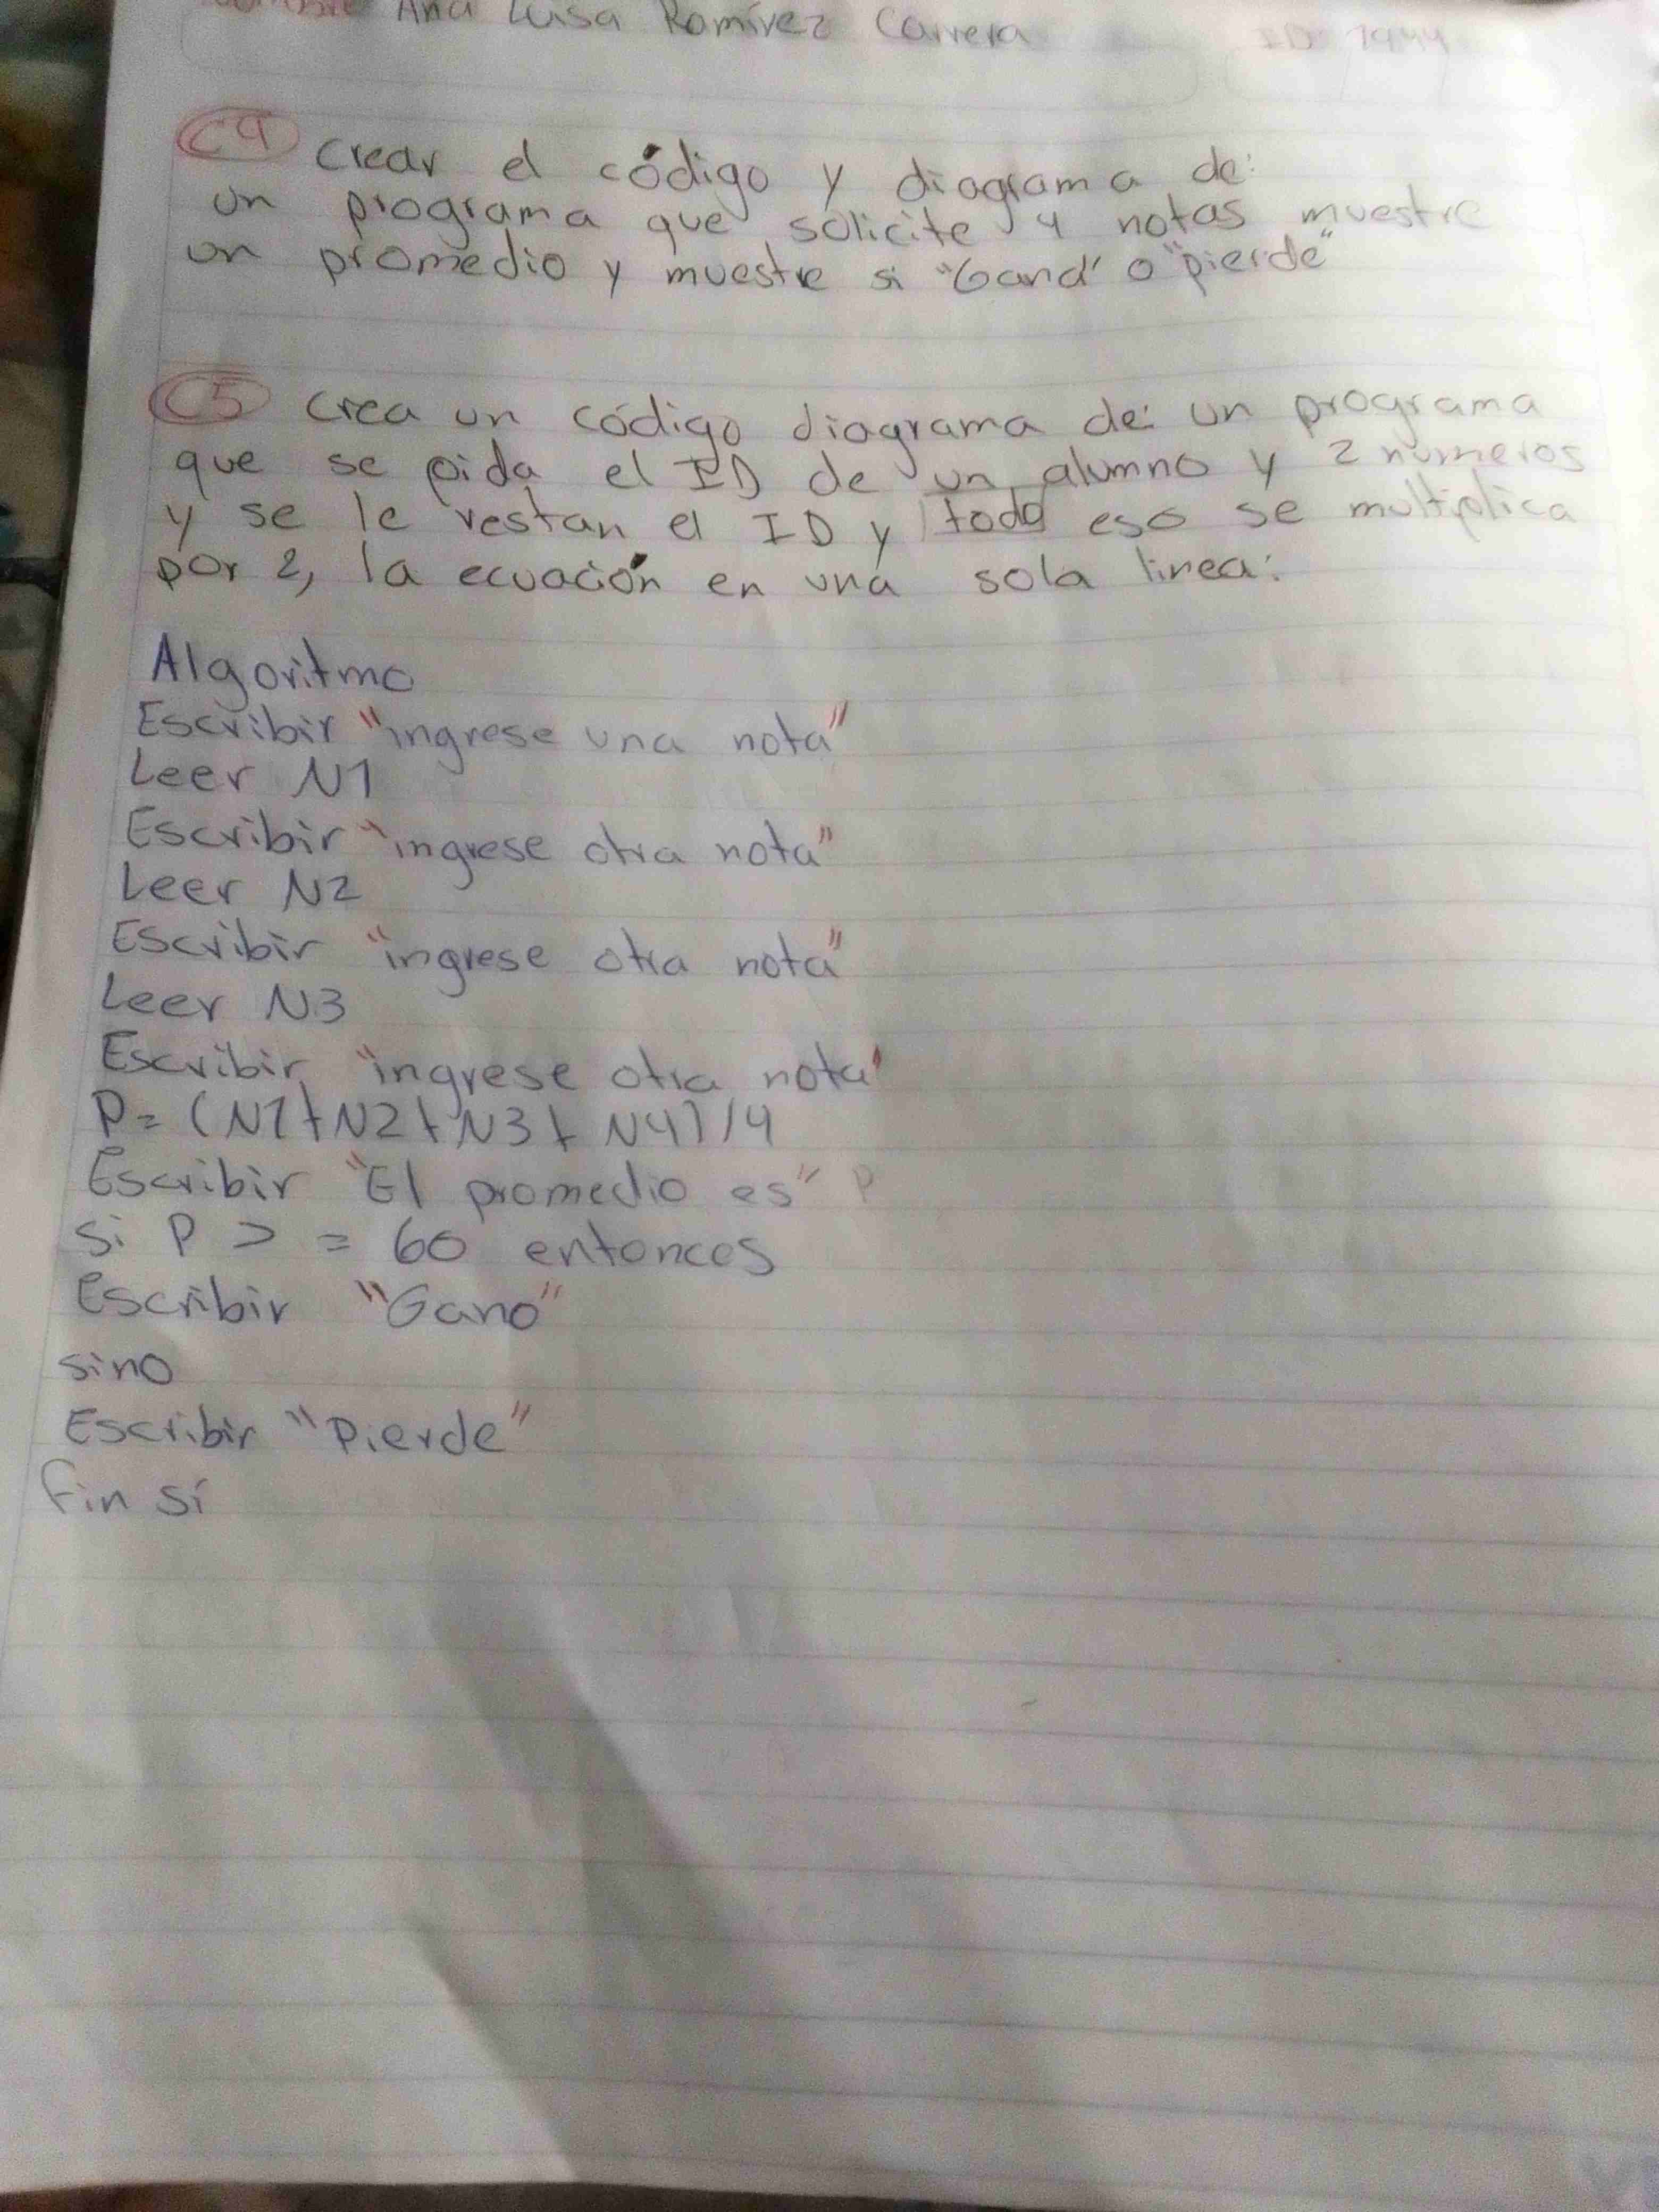 Ana Luisa Ramírez Carrera ID 7944
C4 Crear el código y diagrama de:
un programa que solicite 4 notas muestre
un promedio y muestre si "Gano" o "pierde"
C5 Crea un código diagrama de: un programa
que se pida el ID de un alumno y 2 números
y se le restan el ID y todo eso se multiplica
por 2, la ecuación en una sola linea:
Algoritmo
Escribir "ingrese una nota"
Leer N1
Escribir "ingrese otra nota"
Leer N2
Escribir "ingrese otra nota"
Leer N3
Escribir "ingrese otra nota"
P= (N1+N2+N3+N4)/4
Escribir "El promedio es" P
si P > = 60 entonces
Escribir "Gano"
sino
Escribir "Pierde"
fin si